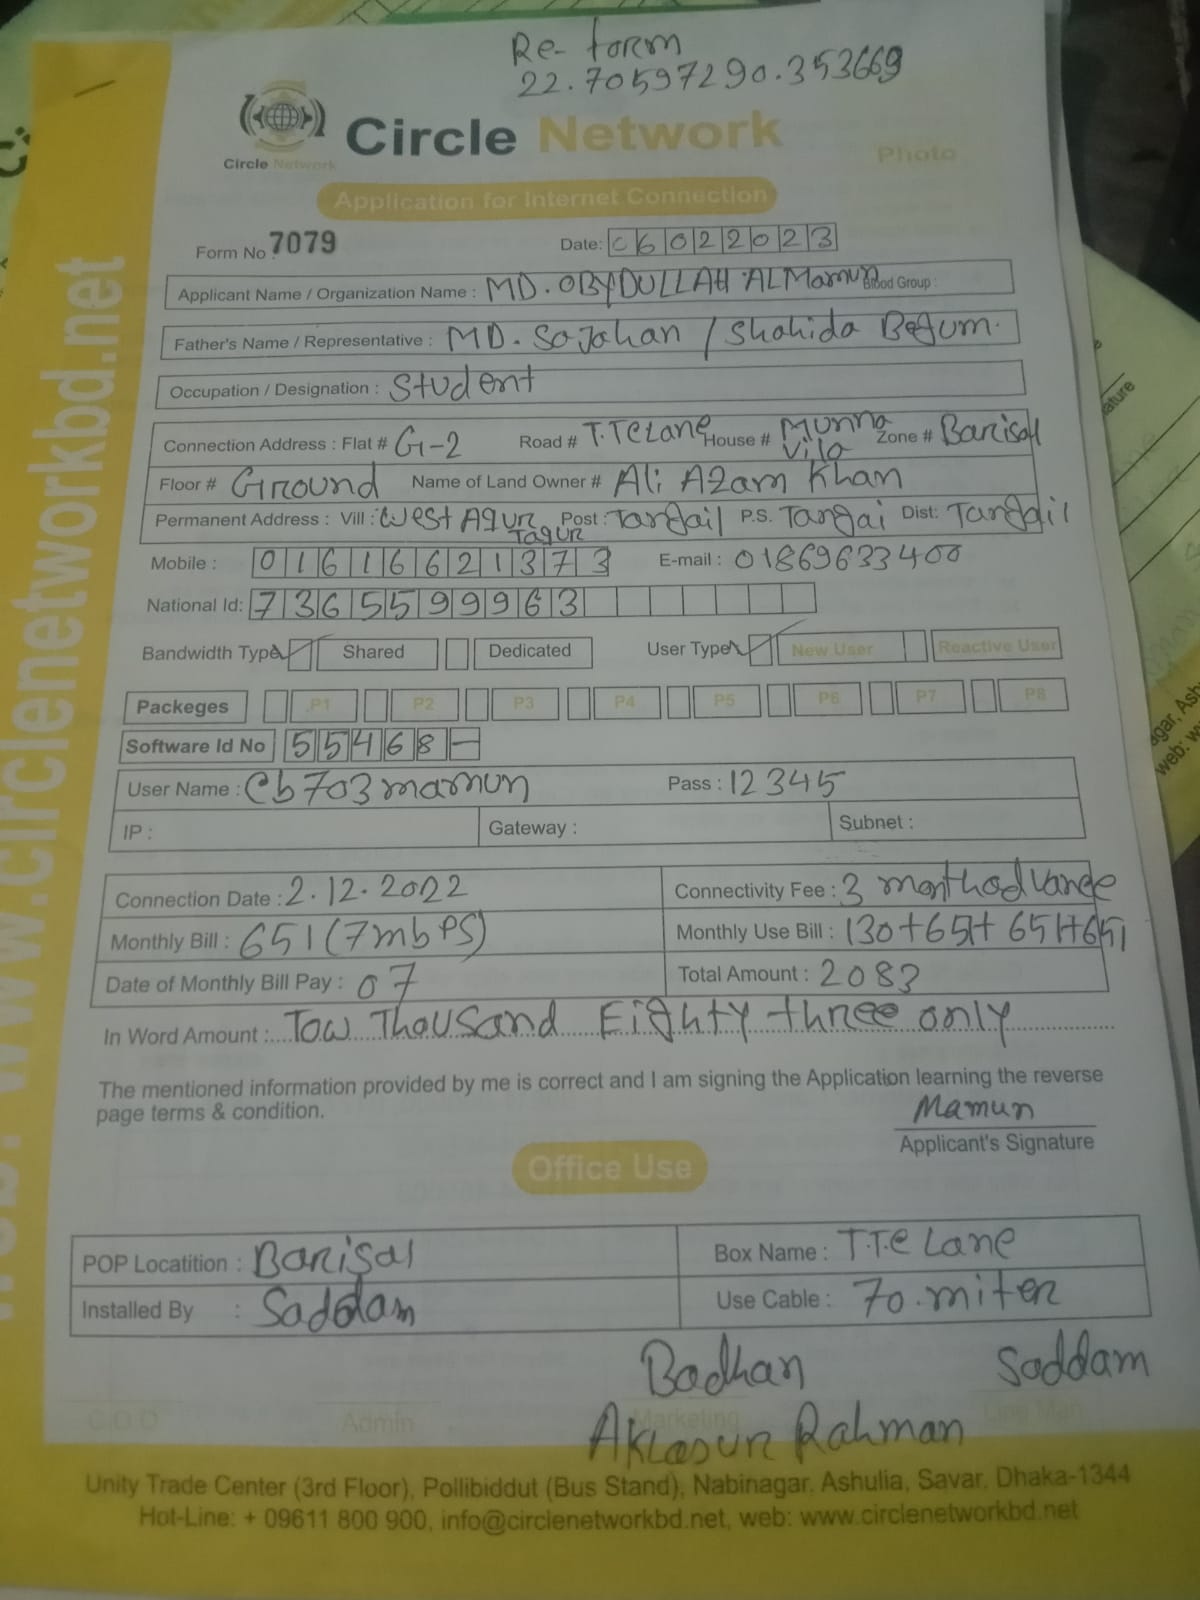 Re- form
22.70597290.353669
Circle Network
Circle Network
Photo
Application for Internet Connection
Form No : 7079 Date: 06022023
Applicant Name / Organization Name : MD. OBYDULLAH AL Mamun Blood Group :
Father's Name / Representative : MD. Sojahan / Shahida Begum.
Occupation / Designation : Student
Connection Address : Flat # G-2 Road # T.TE Lane House # Munna Vila Zone # Barisal
Floor # Ground Name of Land Owner # Ali Azam Khan
Permanent Address : Vill : West Agur Tagur Post : Tangail P.S. Tangai Dist: Tangail
Mobile : 01616621373 E-mail : 01869633400
National Id: 7365599963
Bandwidth Type Shared Dedicated User Type New User Reactive User
Packeges P1 P2 P3 P4 P5 P6 P7 P8
Software Id No 55468-
User Name : Cb703mamun Pass : 12345
IP : Gateway : Subnet :
Connection Date : 2.12.2022 Connectivity Fee : 3 month advance
Monthly Bill : 651 (7mbPS) Monthly Use Bill : 130+651+651+651
Date of Monthly Bill Pay : 07 Total Amount : 2083
In Word Amount : Tow Thousand Eighty three only
The mentioned information provided by me is correct and I am signing the Application learning the reverse
page terms & condition.
Mamun
Applicant's Signature
Office Use
POP Locatition : Barisal Box Name : T.T.E Lane
Installed By : Saddam Use Cable : 70.miter
Badhan Saddam
C O O Admin Marketing Line Man
Aklasur Rahman
Unity Trade Center (3rd Floor), Pollibiddut (Bus Stand), Nabinagar, Ashulia, Savar, Dhaka-1344
Hot-Line: + 09611 800 900, info@circlenetworkbd.net, web: www.circlenetworkbd.net
web: www.circlenetworkbd.net